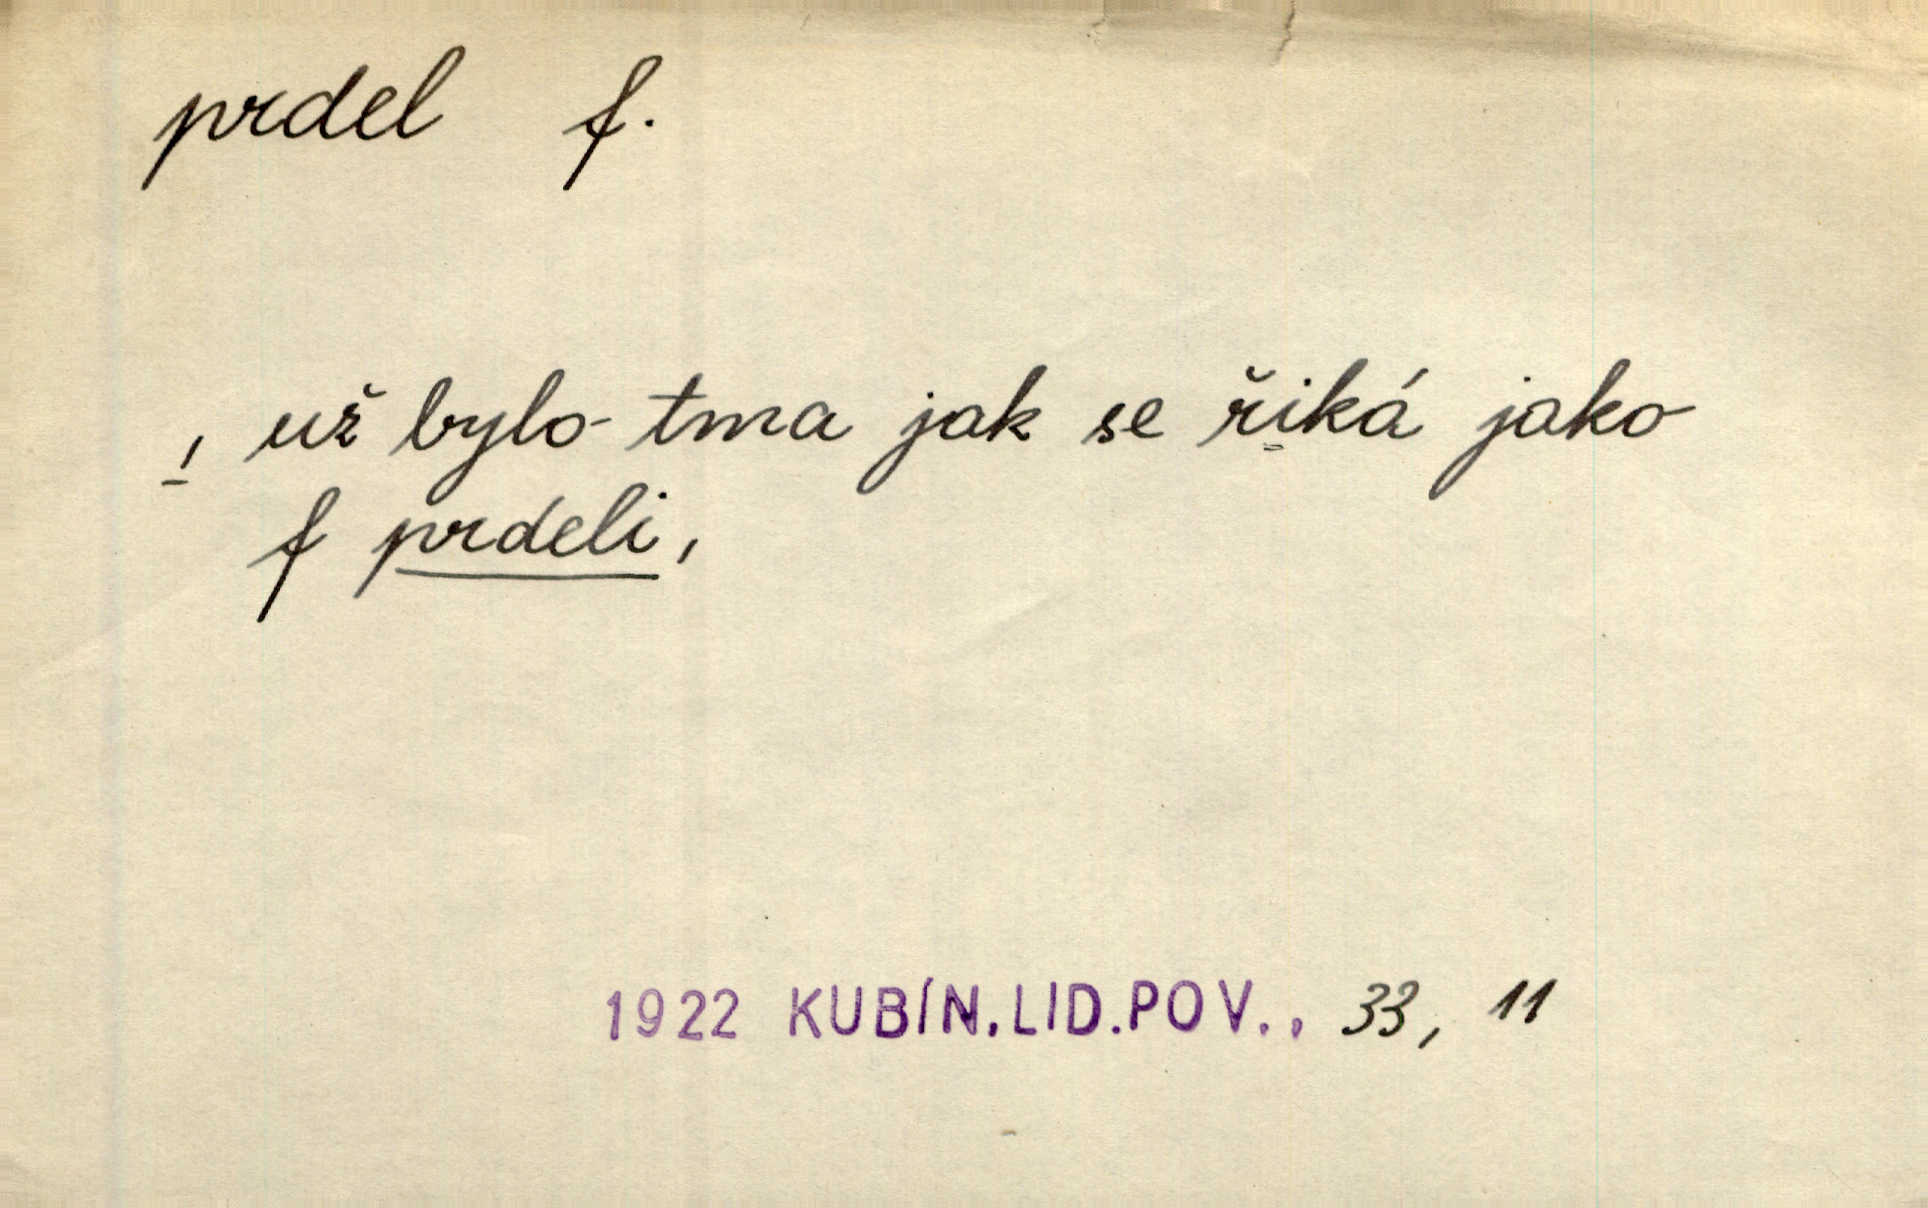 prdel f.
, už bylo tma jak se řiká jako
f prdeli,
1922 KUBÍN.LID.POV., 33, 11